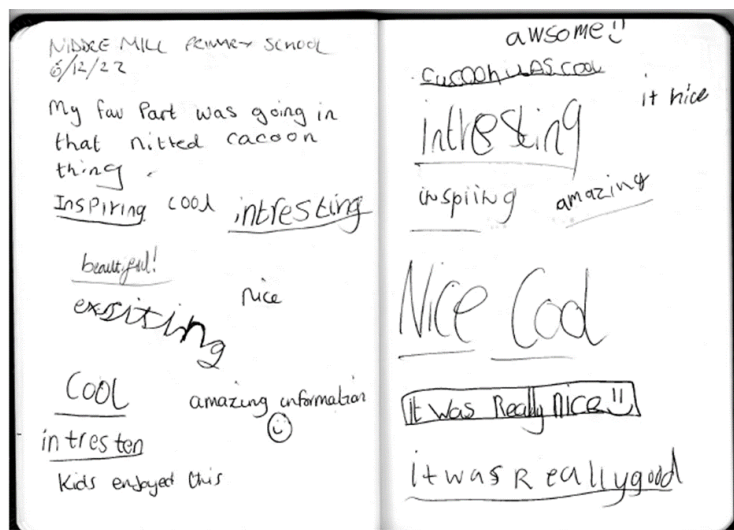 NIDDLE MILL PRIMARY SCHOOL
6/12/22
My fav Part was going in
that nitted cacoon
thing.
Inspiring cool intresting
beautiful!
exsiting
nice
COOL
amazing information
intresten
Kids enjoyed this
awsome
cucooh WAS cool
it nice
intresting
inspiing
amazing
Nice Cool
it was Really nice
it was Really good